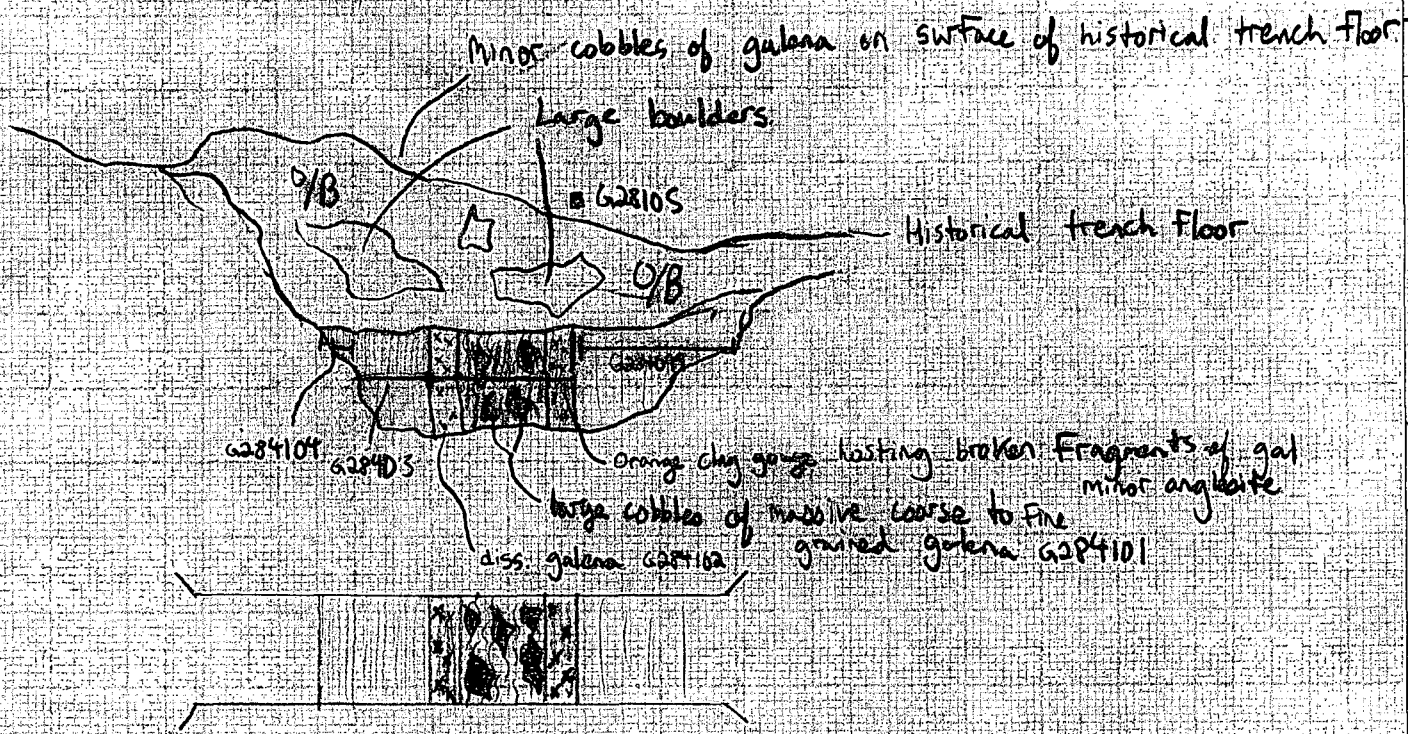 Minor cobbles of galena on surface of historical trench floor
Large boulders.
O/B
G28105
Historical trench Floor
O/B
G284104
G284103
Orange clay gouge hosting broken Fragments of gal
minor anglesite
large cobbles of massive coarse to Fine
grained galena G284101
diss galena G284102